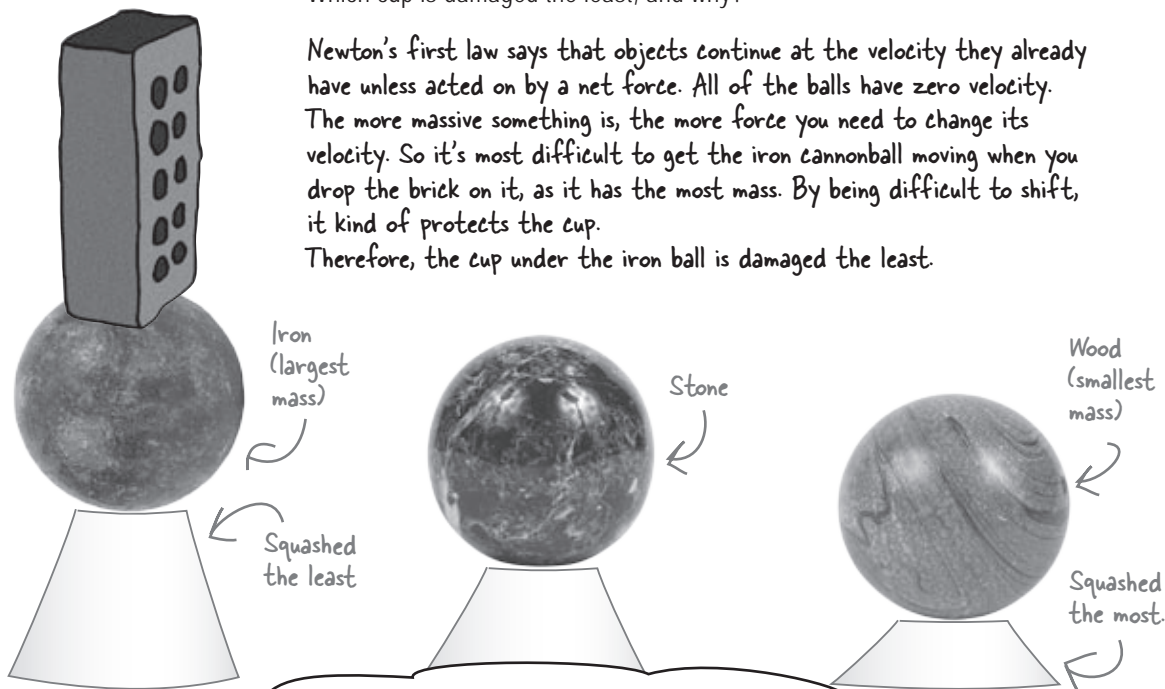 Which cup is damaged the least, and why?
Newton's first law says that objects continue at the velocity they already
have unless acted on by a net force. All of the balls have zero velocity.
The more massive something is, the more force you need to change its
velocity. So it's most difficult to get the iron cannonball moving when you
drop the brick on it, as it has the most mass. By being difficult to shift,
it kind of protects the cup.
Therefore, the cup under the iron ball is damaged the least.
Iron
(largest
mass)
Squashed
the least
Stone
Wood
(smallest
mass)
Squashed
the most.